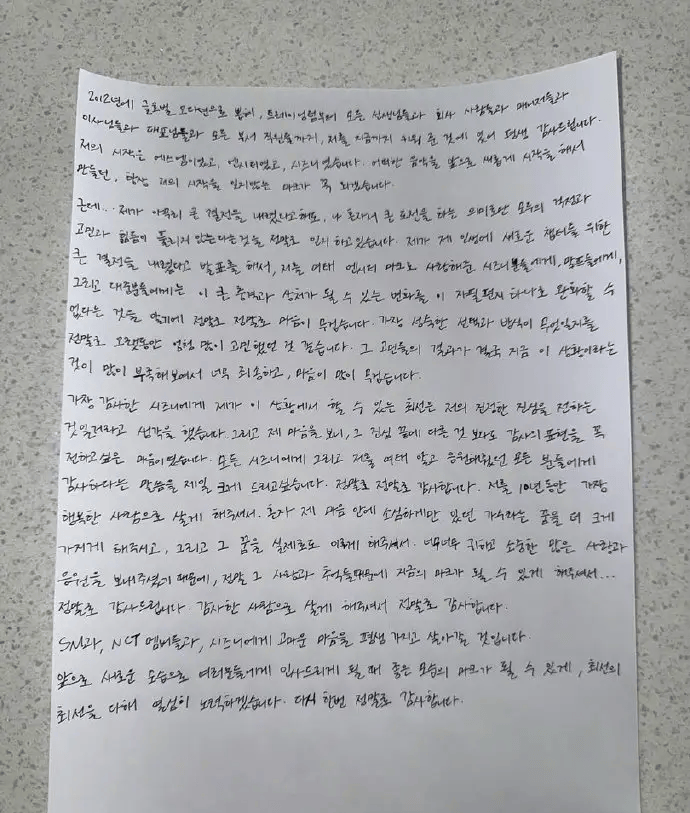 2012년에 글로벌 오디션으로 뽑혀, 트레이닝팀부터 모든 선생님들과 회사 사람들과 매니저들과
이사님들과 대표님들과 모든 부서 직원들까지, 저를 지금까지 키워 준 것에 있어 평생 감사드립니다.
저의 시작은 에스엠이였고, 엔시티였고, 시즈니였습니다. 어떠한 음악을 앞으로 새롭게 시작을 해서
만들던, 항상 저의 시작을 잊지않는 마크가 꼭 되겠습니다.
근데.. 제가 아무리 큰 결정을 내렸다고해도, 나 혼자서 큰 도전을 하는 의미로만 모두의 걱정과
고민과 힘듦이 풀리지 않는다는것을 정말로 인지 하고있습니다. 제가 제 인생에 새로운 챕터를 위한
큰 결정을 내렸다고 발표를 해서, 저를 여태 엔시티 마크로 사랑해준 시즈니분들에게, 맘프들에게,
그리고 대중분들에게는 이 큰 충격과 상처가 될 수 있는 변화를 이 자필편지 하나로 완화할 수
없다는 것을 알기에 정말로 정말로 마음이 무겁습니다. 가장 성숙한 선택과 방식이 무엇일지를
정말로 오랫동안 엄청 많이 고민했던 것 같습니다. 그 고민들의 결과가 결국 지금 이 상황이라는
것이 많이 부족해보여서 너무 죄송하고, 마음이 많이 무겁습니다.
가장 감사한 시즈니에게 제가 이 상황에서 할 수 있는 최선은 저의 진정한 진심을 전하는
것일거라고 생각을 했습니다. 그리고 제 마음을 보니, 그 진심 끝에 다른 것 보다도 감사의 표현을 꼭
전하고싶은 마음이였습니다. 모든 시즈니에게 그리고 저를 여태 알고 응원해줬던 모든 분들에게
감사하다는 말씀을 제일 크게 드리고싶습니다. 정말로 정말로 감사합니다. 저를 10년동안 가장
행복한 사람으로 살게 해주셔서. 혼자 제 마음 안에 소심하게만 있던 가수라는 꿈을 더 크게
가지게 해주시고, 그리고 그 꿈을 실제로도 이루게 해주셔서. 너무너무 귀하고 소중한 많은 사랑과
응원을 보내주셨기 때문에, 정말 그 사랑과 추억들때문에 지금의 마크가 될 수 있게 해주셔서...
정말로 감사드립니다. 감사한 사람으로 살게 해주셔서 정말로 감사합니다.
SM과, NCT 멤버들과, 시즈니에게 고마운 마음을 평생 가지고 살아갈 것입니다.
앞으로 새로운 모습으로 여러분들에게 인사드리게 될 때 좋은 모습의 마크가 될 수 있게, 최선의
최선을 다해 열심히 노력하겠습니다. 다시 한번 정말로 감사합니다.